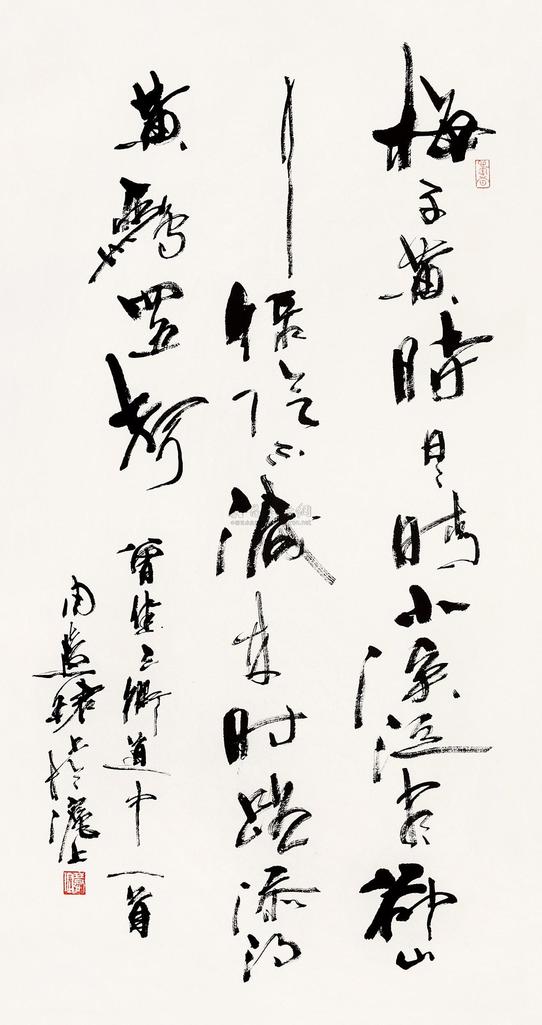 梅子黃時日日晴小溪泛盡卻山
行綠陰不減來时路添得
黃鸝四五聲
曾幾三衢道中一首
周慧珺书於滬上